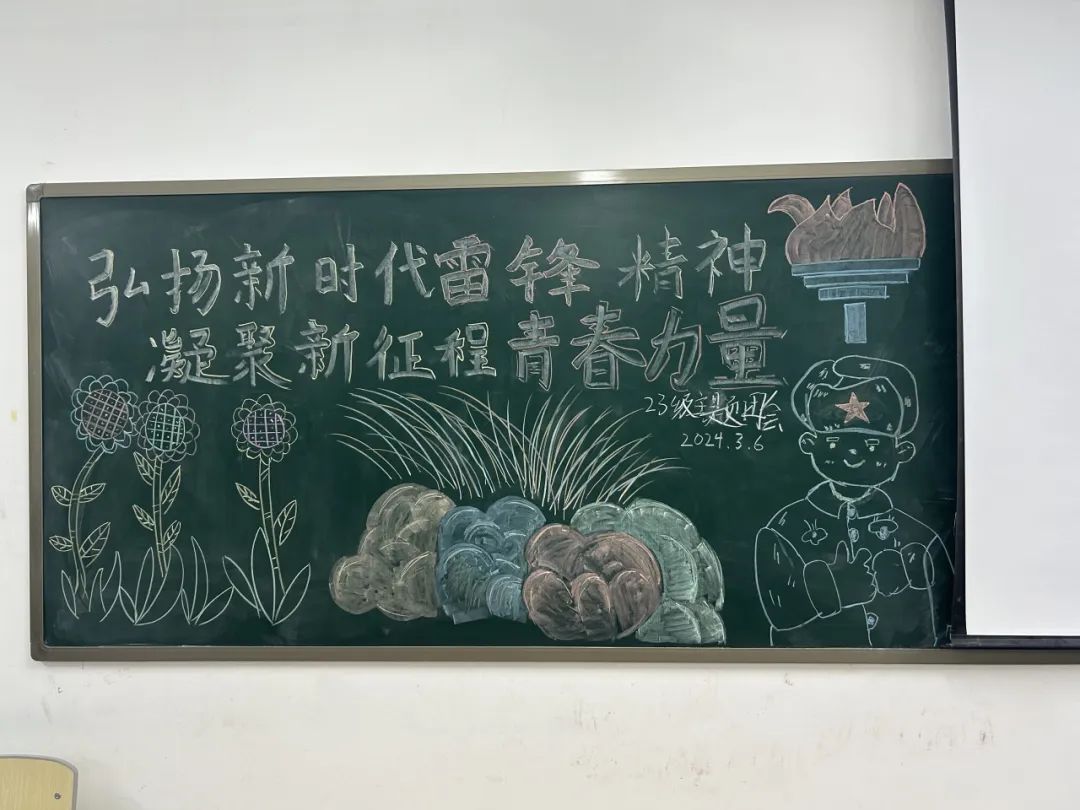 弘扬新时代雷锋精神
凝聚新征程青春力量
23级主题团会
2024.3.6